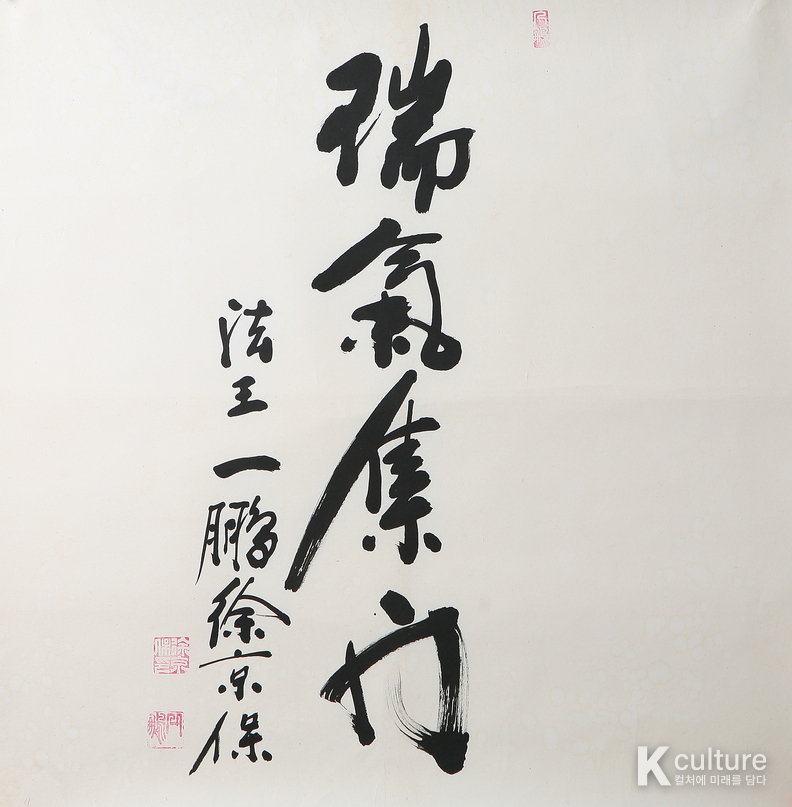 瑞氣集門
法王一鵬徐京保
K culture
컬처에 미래를 담다